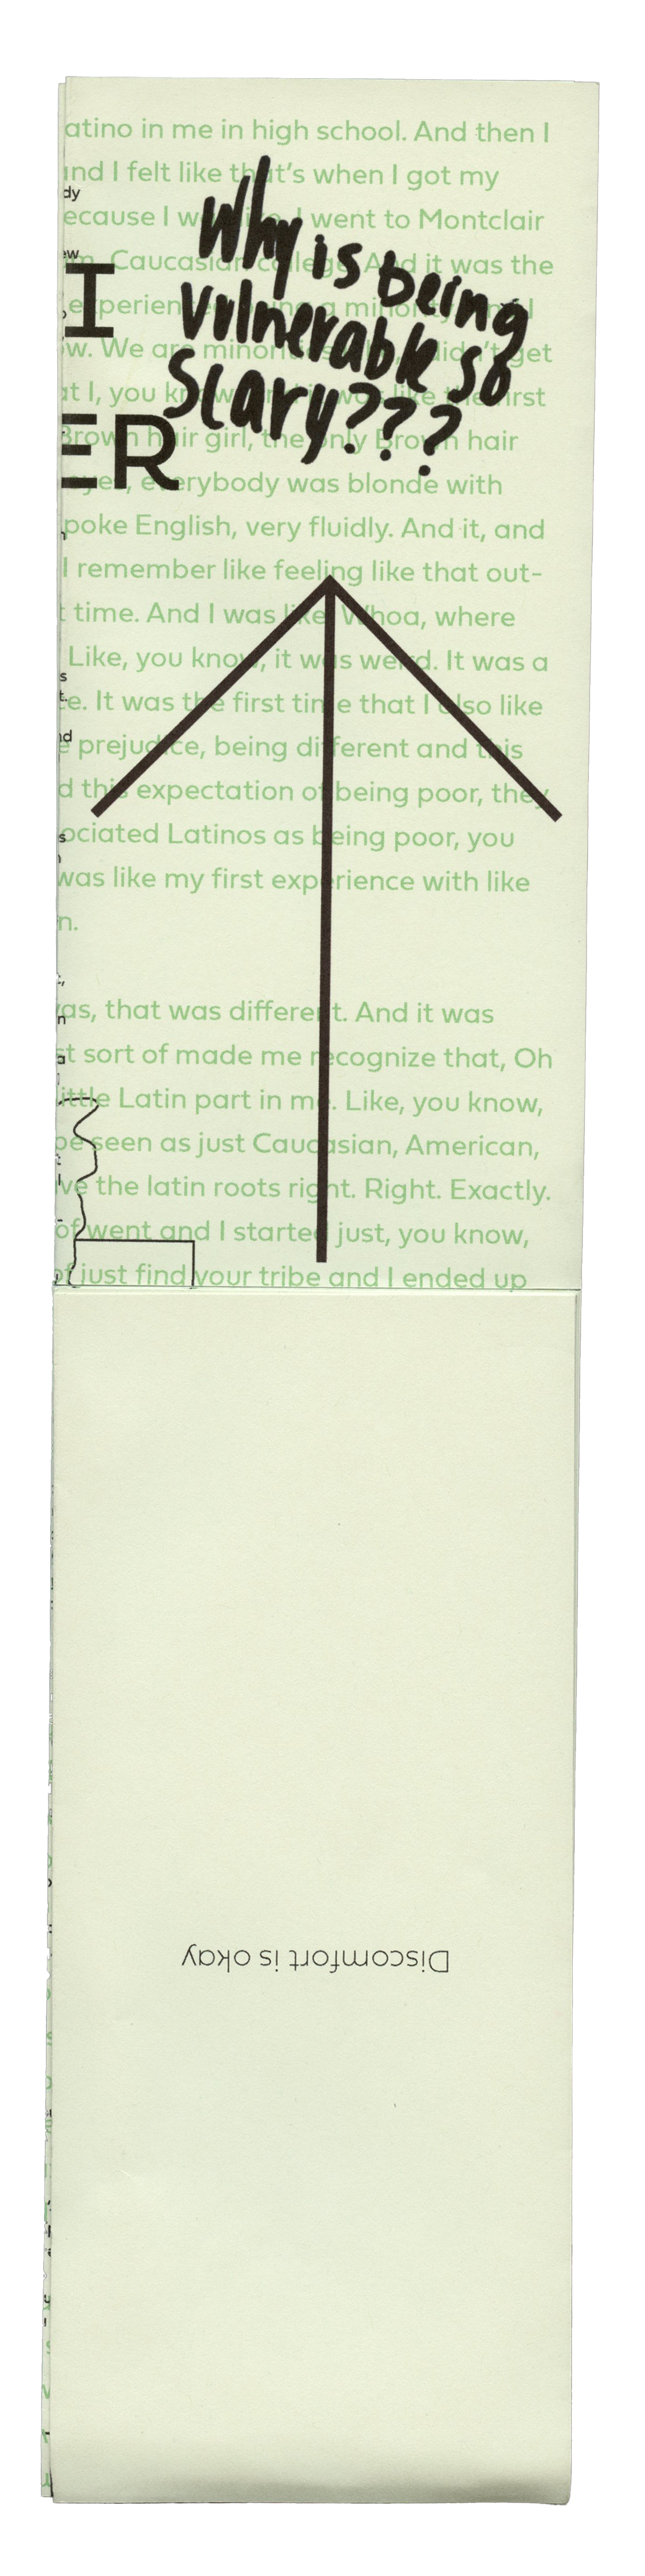 atino in me in high school. And then I
and I felt like that's when I got my
ecause I was like, I went to Montclair
Caucasian college. And it was the
experience being a minority. And I
w. We are minorities didn't get
at I, you know, and it was like the first
Brown hair girl, the only Brown hair
eyes, everybody was blonde with
poke English, very fluidly. And it, and
I remember like feeling like that out-
t time. And I was like, Whoa, where
Like, you know, it was weird. It was a
e. It was the first time that I also like
e prejudice, being different and this
d this expectation of being poor, they
ociated Latinos as being poor, you
was like my first experience with like
n.
was, that was different. And it was
st sort of made me recognize that, Oh
little Latin part in me. Like, you know,
be seen as just Caucasian, American,
ve the latin roots right. Right. Exactly.
of went and I started just, you know,
of just find your tribe and I ended up
Why is being
vulnerable so
scary???
I
ER
Discomfort is okay